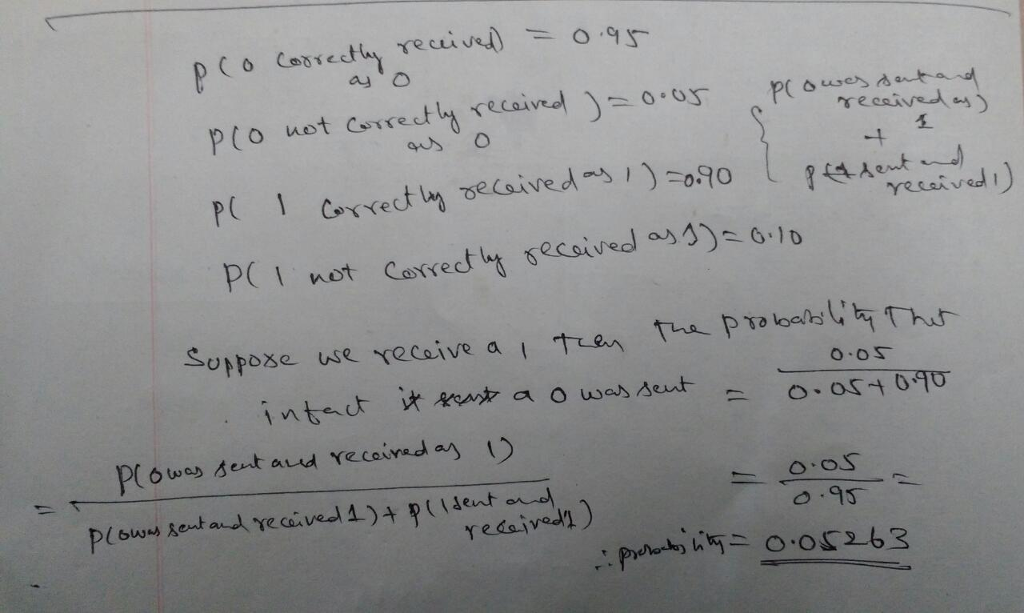 P(0 correctly received) = 0.95
as 0
P(0 not correctly received) = 0.05
as 0
P( 1 correctly received as 1) = 0.90
P( 1 not correctly received as 1) = 0.10
{ P(0 was sent and
received as)
+ 1
P(1 sent and
received 1)
Suppose we receive a 1 then the probability that
in fact it a 0 was sent = 0.05
0.05 + 0.90
= P(0 was sent and received as 1)
P(0 was sent and received 1) + P(1 sent and
received 1)
= 0.05
0.95 =
∴ probability = 0.05263